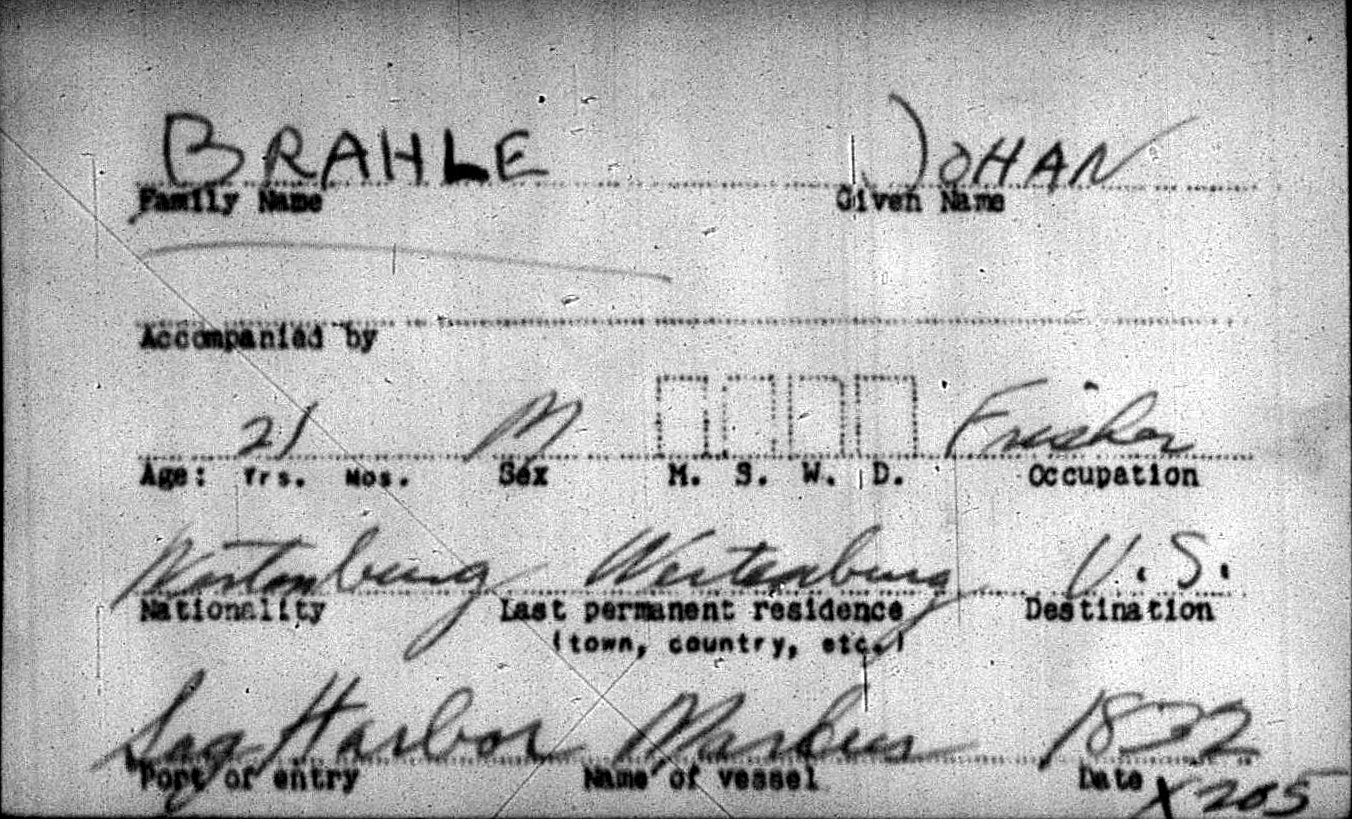 BRAHLE JOHAN
Family Name Given Name
Accompanied by
21 M Frisher
Age: Yrs. Mos. Sex M. S. W. D. Occupation
Wortemburg Wertenburg U.S.
Nationality Last permanent residence Destination
(town, country, etc.)
Sag Harbor Markus 1832
Port of entry Name of vessel Date
X205